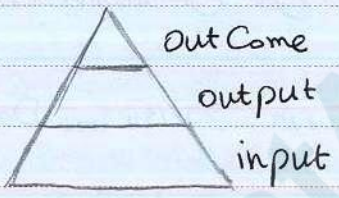 outCome
output
input